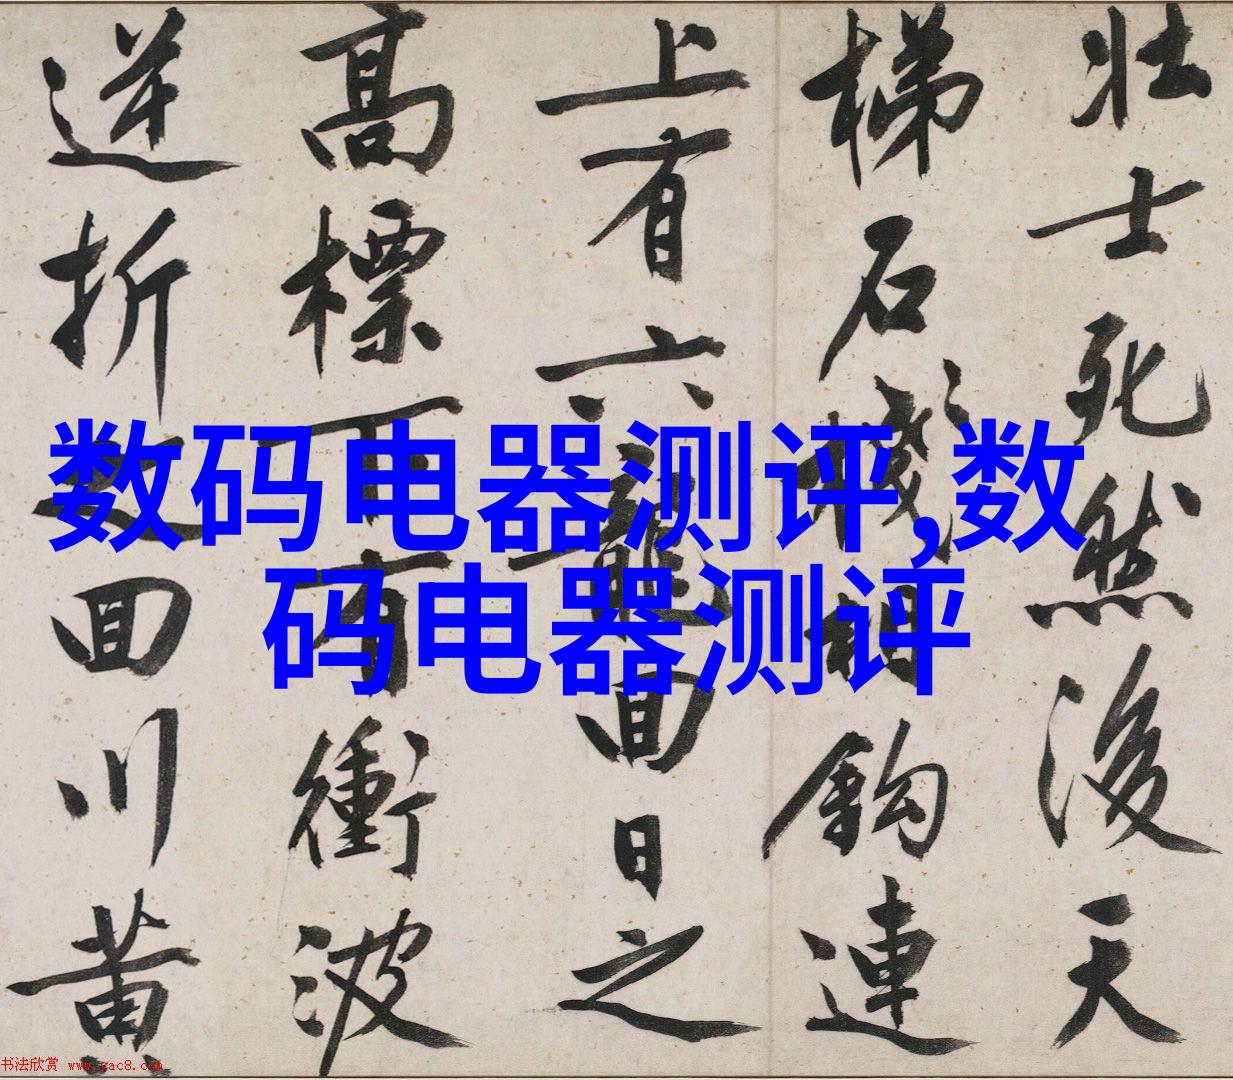 壮士死然後天
梯石棧相鈎連
上有六龍回日之
高標下有衝波
逆折之回川黄
数码电器测评,数
码电器测评
书法欣赏 www.yac8.com